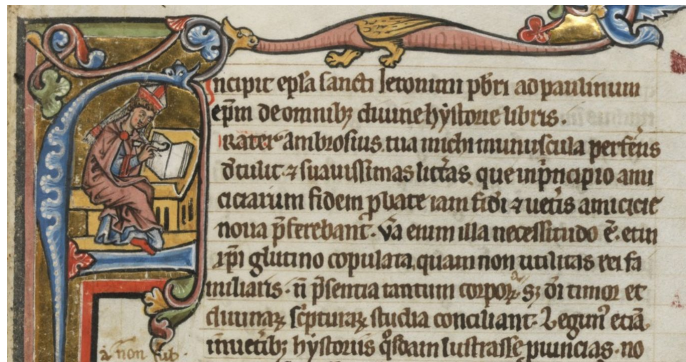 Incipit epla sancti Ieronimi pbri ad paulinum
epm de omnibꝫ diuine hystorie libris.
Frater ambrosius, tua michi munuscula perferens
detulit ⁊ suauissimas litt̃as, que in pͥncipio ami
ciciarum fidem ꝓbate iam fidei ⁊ ueteris amicicie
noua p̃ferebant. Va enim illa necessitudo ē. et in
xp̃i glutino copulata, quam non utilitas rei fa
miliaris. ñ p̃sentia tantum corpoꝝ, sꝫ dei timor et
diuinaꝝ scͥpturaꝝ studia conciliant. Legimꝰ etiã
in uetibꝫ hystoriis qͦsdam lustrasse puincias. no
a non sub.